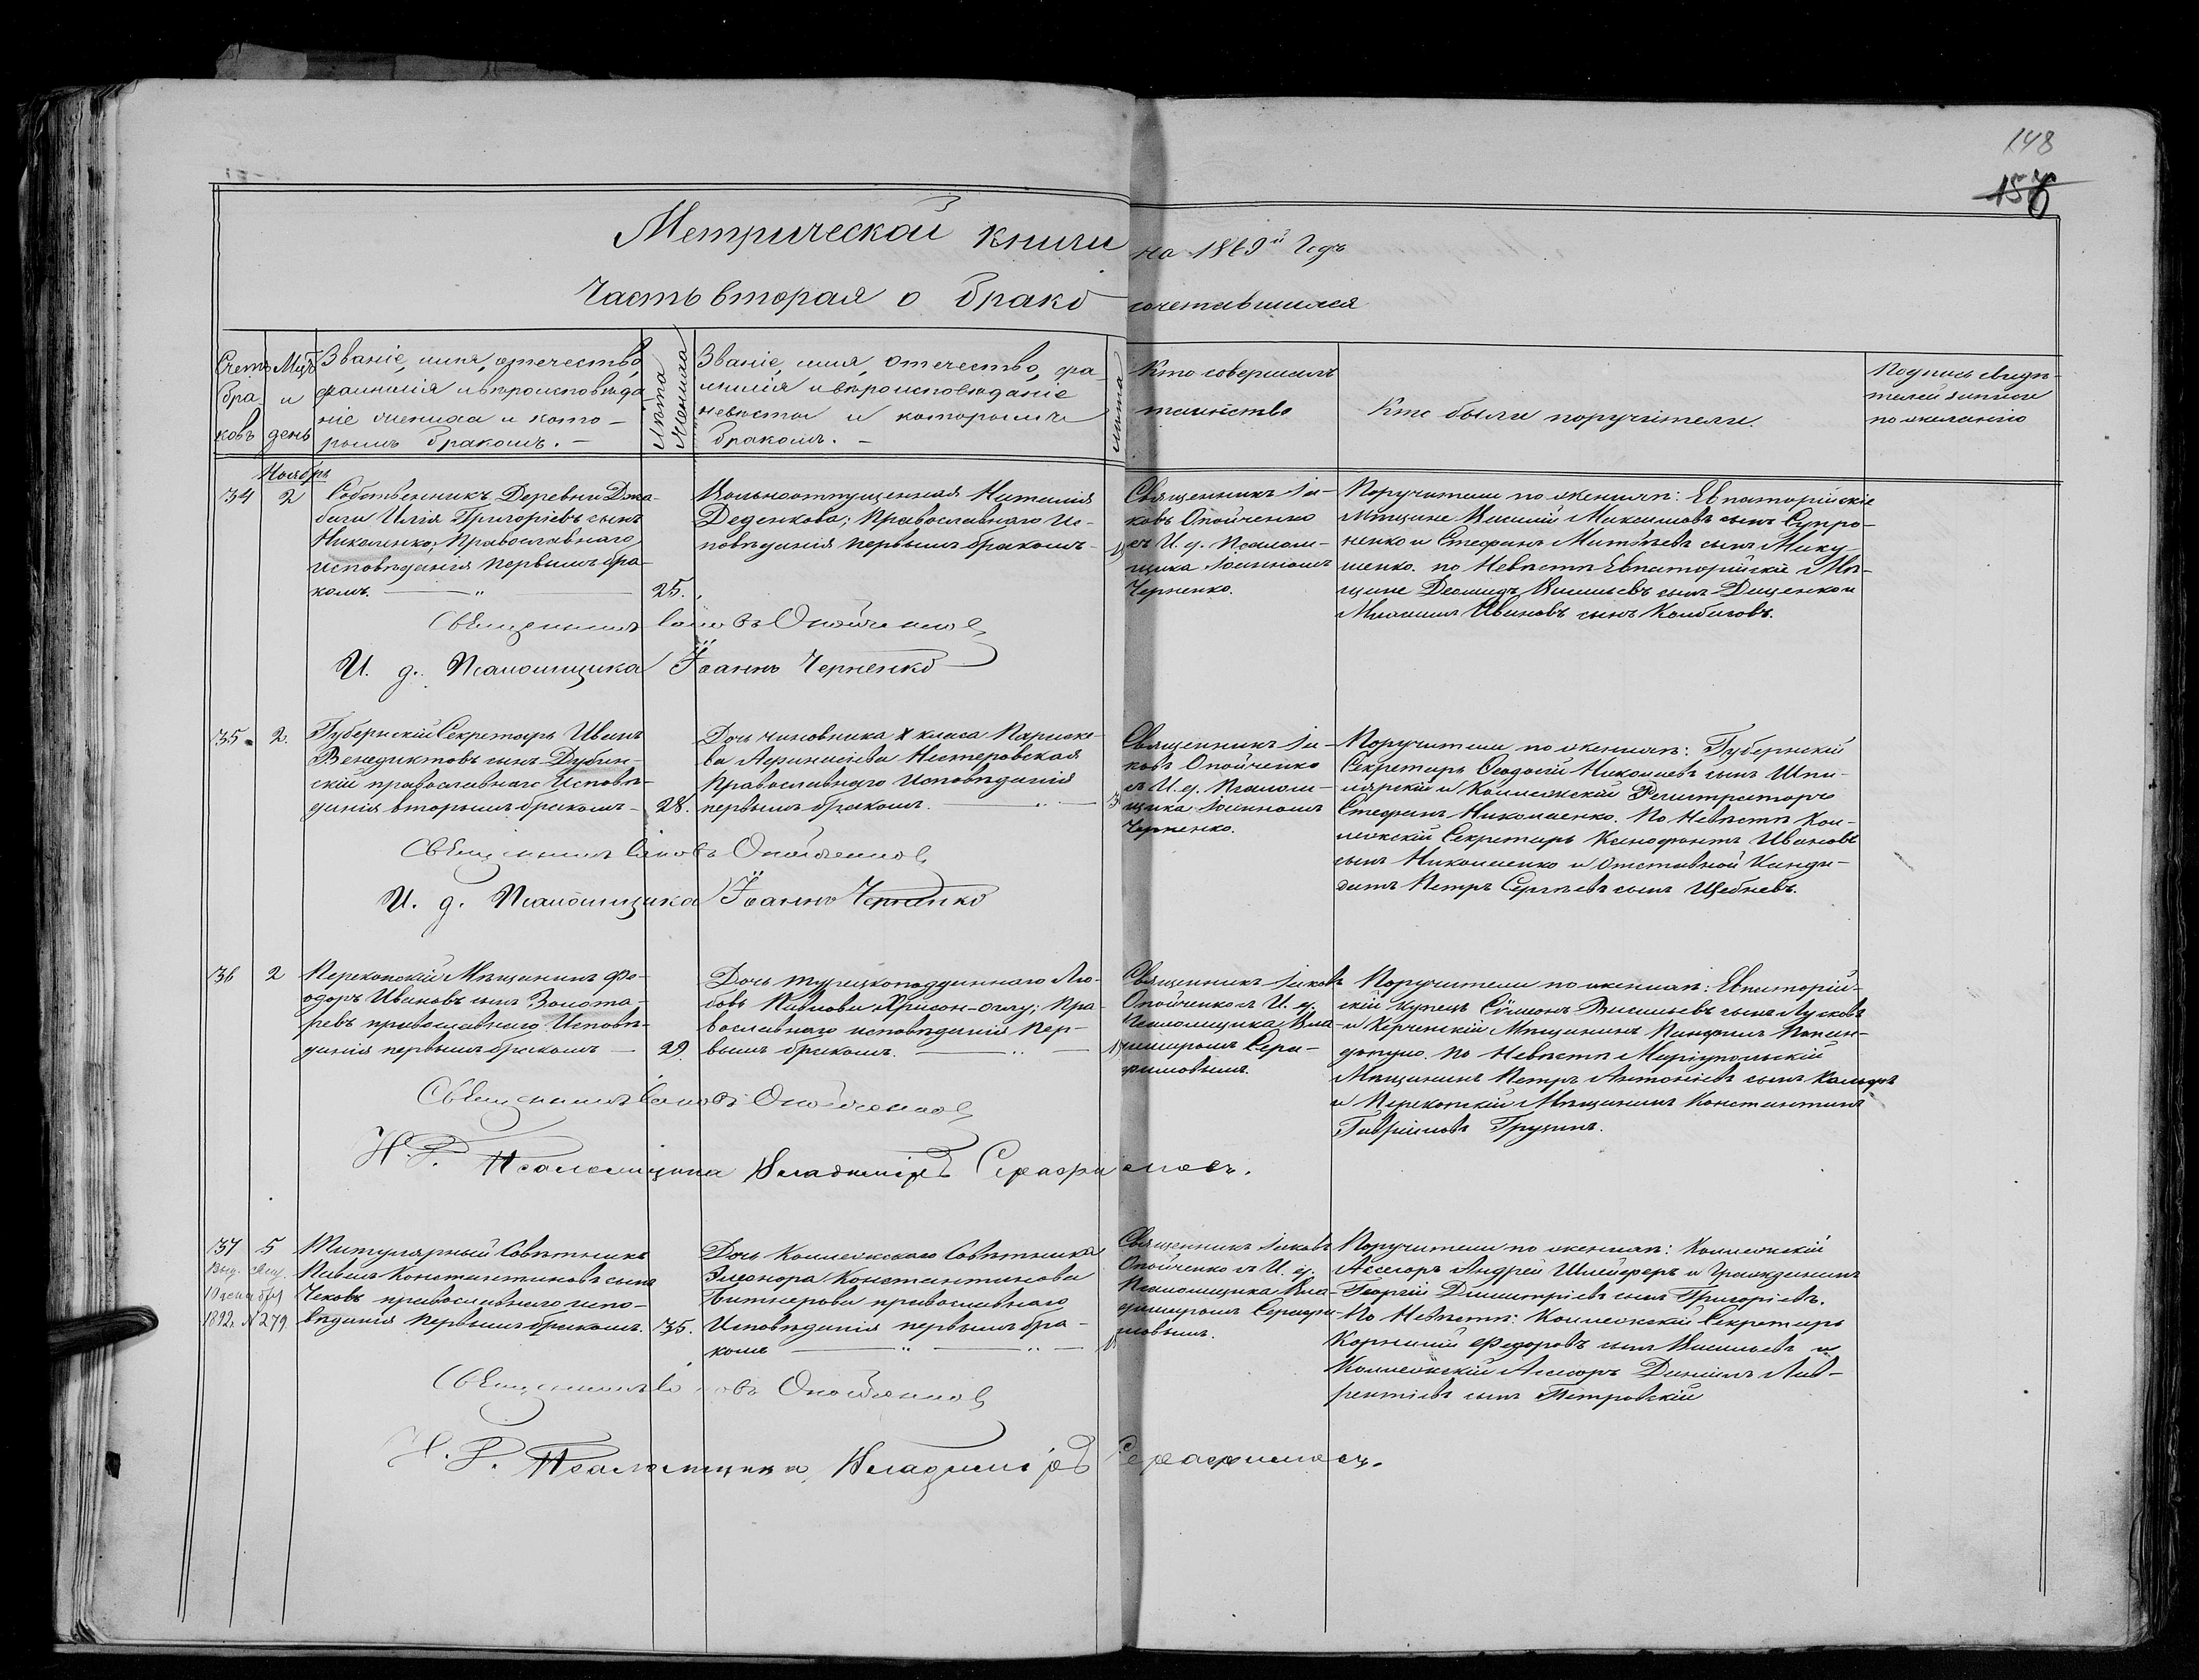 148
Метрической книги на 1869й Годъ
Часть вторая о брако сочетавшихся
Счетъ браковъ
Мцъ и день
Званіе, имя, отечество,
фамилія и вѣроисповѣда
ніе жениха и кото-
рымъ бракомъ. —
Лѣта жениха
Званіе, имя, отечество, фа-
милія и вѣроисповѣданіе
невѣсты и которымъ
бракомъ. —
лѣта
Кто совершилъ
таинство
Кто были поручители.
Подпись свидѣ-
телей записи
по желанію
Ноябрь
34
2
Собственникъ Деревни Джа-
бачи Илія Григоріевъ сынъ
Николенко, Православнаго
исповѣданія первымъ бра-
комъ. — " —
25.
Вольноотпущенная Наталія
Деденкова; Православнаго Ис-
повѣданія первымъ бракомъ -
Священникъ Іа-
ковъ Опойченко
съ И. д. Псалом-
щика Іоанномъ
Черненко.
Поручители по женихѣ: Евпаторійскіе
мѣщане Василій Максимовъ сынъ Супро-
ненко и Стефанъ Матвѣевъ сынъ Мику
шенко. по Невѣстѣ Евпаторійскіе Мѣ-
щане Деомидъ Васильевъ сынъ Дещенко и
Михаилъ Ивановъ сынъ
Священникъ Іаковъ Опойченко
И. д. Псаломщика Іоаннъ Черненко
35.
2.
Губернскій Секретарь Иванъ
Венедиктовъ сынъ Дубин-
скій православнаго Исповѣ-
данія вторымъ бракомъ -
28.
Дочь чиновника X класа Параске-
ва Афанасіева Нестеровская
Православнаго Исповѣданія
первымъ бракомъ. " —
Священникъ Іа-
ковъ Опойченко
съ И. д. Псалом-
щика Іоанномъ
Черненко.
Поручители по женихѣ: Губернскій
Секретарь Феодосій Николаевъ сынъ Шпи-
лярскій и Коллежскій Регистраторъ
Стефанъ Николаенко. По Невѣстѣ Кол-
лежскій Секретарь Ксенофонтъ Ивановъ
сынъ Николаенко и Отставной Канди-
датъ Петръ Сергѣевъ сынъ Щебневъ.
Священникъ Іаковъ Опойченко
И. д. Псаломщика Іоаннъ Черненко
36
2
Перекопскій Мѣщанинъ Фе-
одоръ Ивановъ сынъ Золота-
ревъ православнаго Исповѣ-
данія первымъ бракомъ —
29.
Дочь турецкоподданнаго Лю-
бовь Павлова Хрисон-оглу; Пра-
вославнаго исповѣданія Пер-
вымъ бракомъ. — " —
Священникъ Іаковъ
Опойченко съ И. д.
Псаломщика Вла-
диміромъ Сера-
фимовымъ.
Поручители по женихѣ: Евпаторій-
скій купецъ Сѵмеонъ Васильевъ сынъ
и Керченскій Мѣщанинъ Панфилъ
по Невѣстѣ Маріупольскій
Мѣщанинъ Петръ Антоніевъ сынъ
и Перекопскій Мѣщанинъ Константинъ
Гавриловъ Грузинъ.
Священникъ Іаковъ Опойченко
И. Д. Псаломщика Владиміръ Серафимовъ.
37
5
Выд. свид.
10 декабря
1892. № 279
Титулярный Совѣтникъ
Павелъ Константиновъ сынъ
Чеховъ православнаго испо-
вѣданія первымъ бракомъ.
35.
Дочь Коллежскаго Совѣтника
Элеонора Константинова
Битнерова православнаго
Исповѣданія первымъ бра-
комъ — " — " —
Священникъ Іаковъ
Опойченко съ И. д.
Псаломщика Вла-
диміромъ Серафи-
мовымъ.
Поручители по женихѣ: Коллежскій
Ассесоръ Андрей Шлейферъ и Гражданинъ
Георгій Димитріевъ сынъ Григоріевъ.
По Невѣстѣ: Коллежскій Секретарь
Корнилій Федоровъ сынъ Васильевъ и
Коллежскій Ассесоръ Даніилъ Лав-
рентіевъ сынъ Петровскій
Священникъ Іаковъ Опойченко
И. Д. Псаломщика, Владиміръ Серафимовъ.